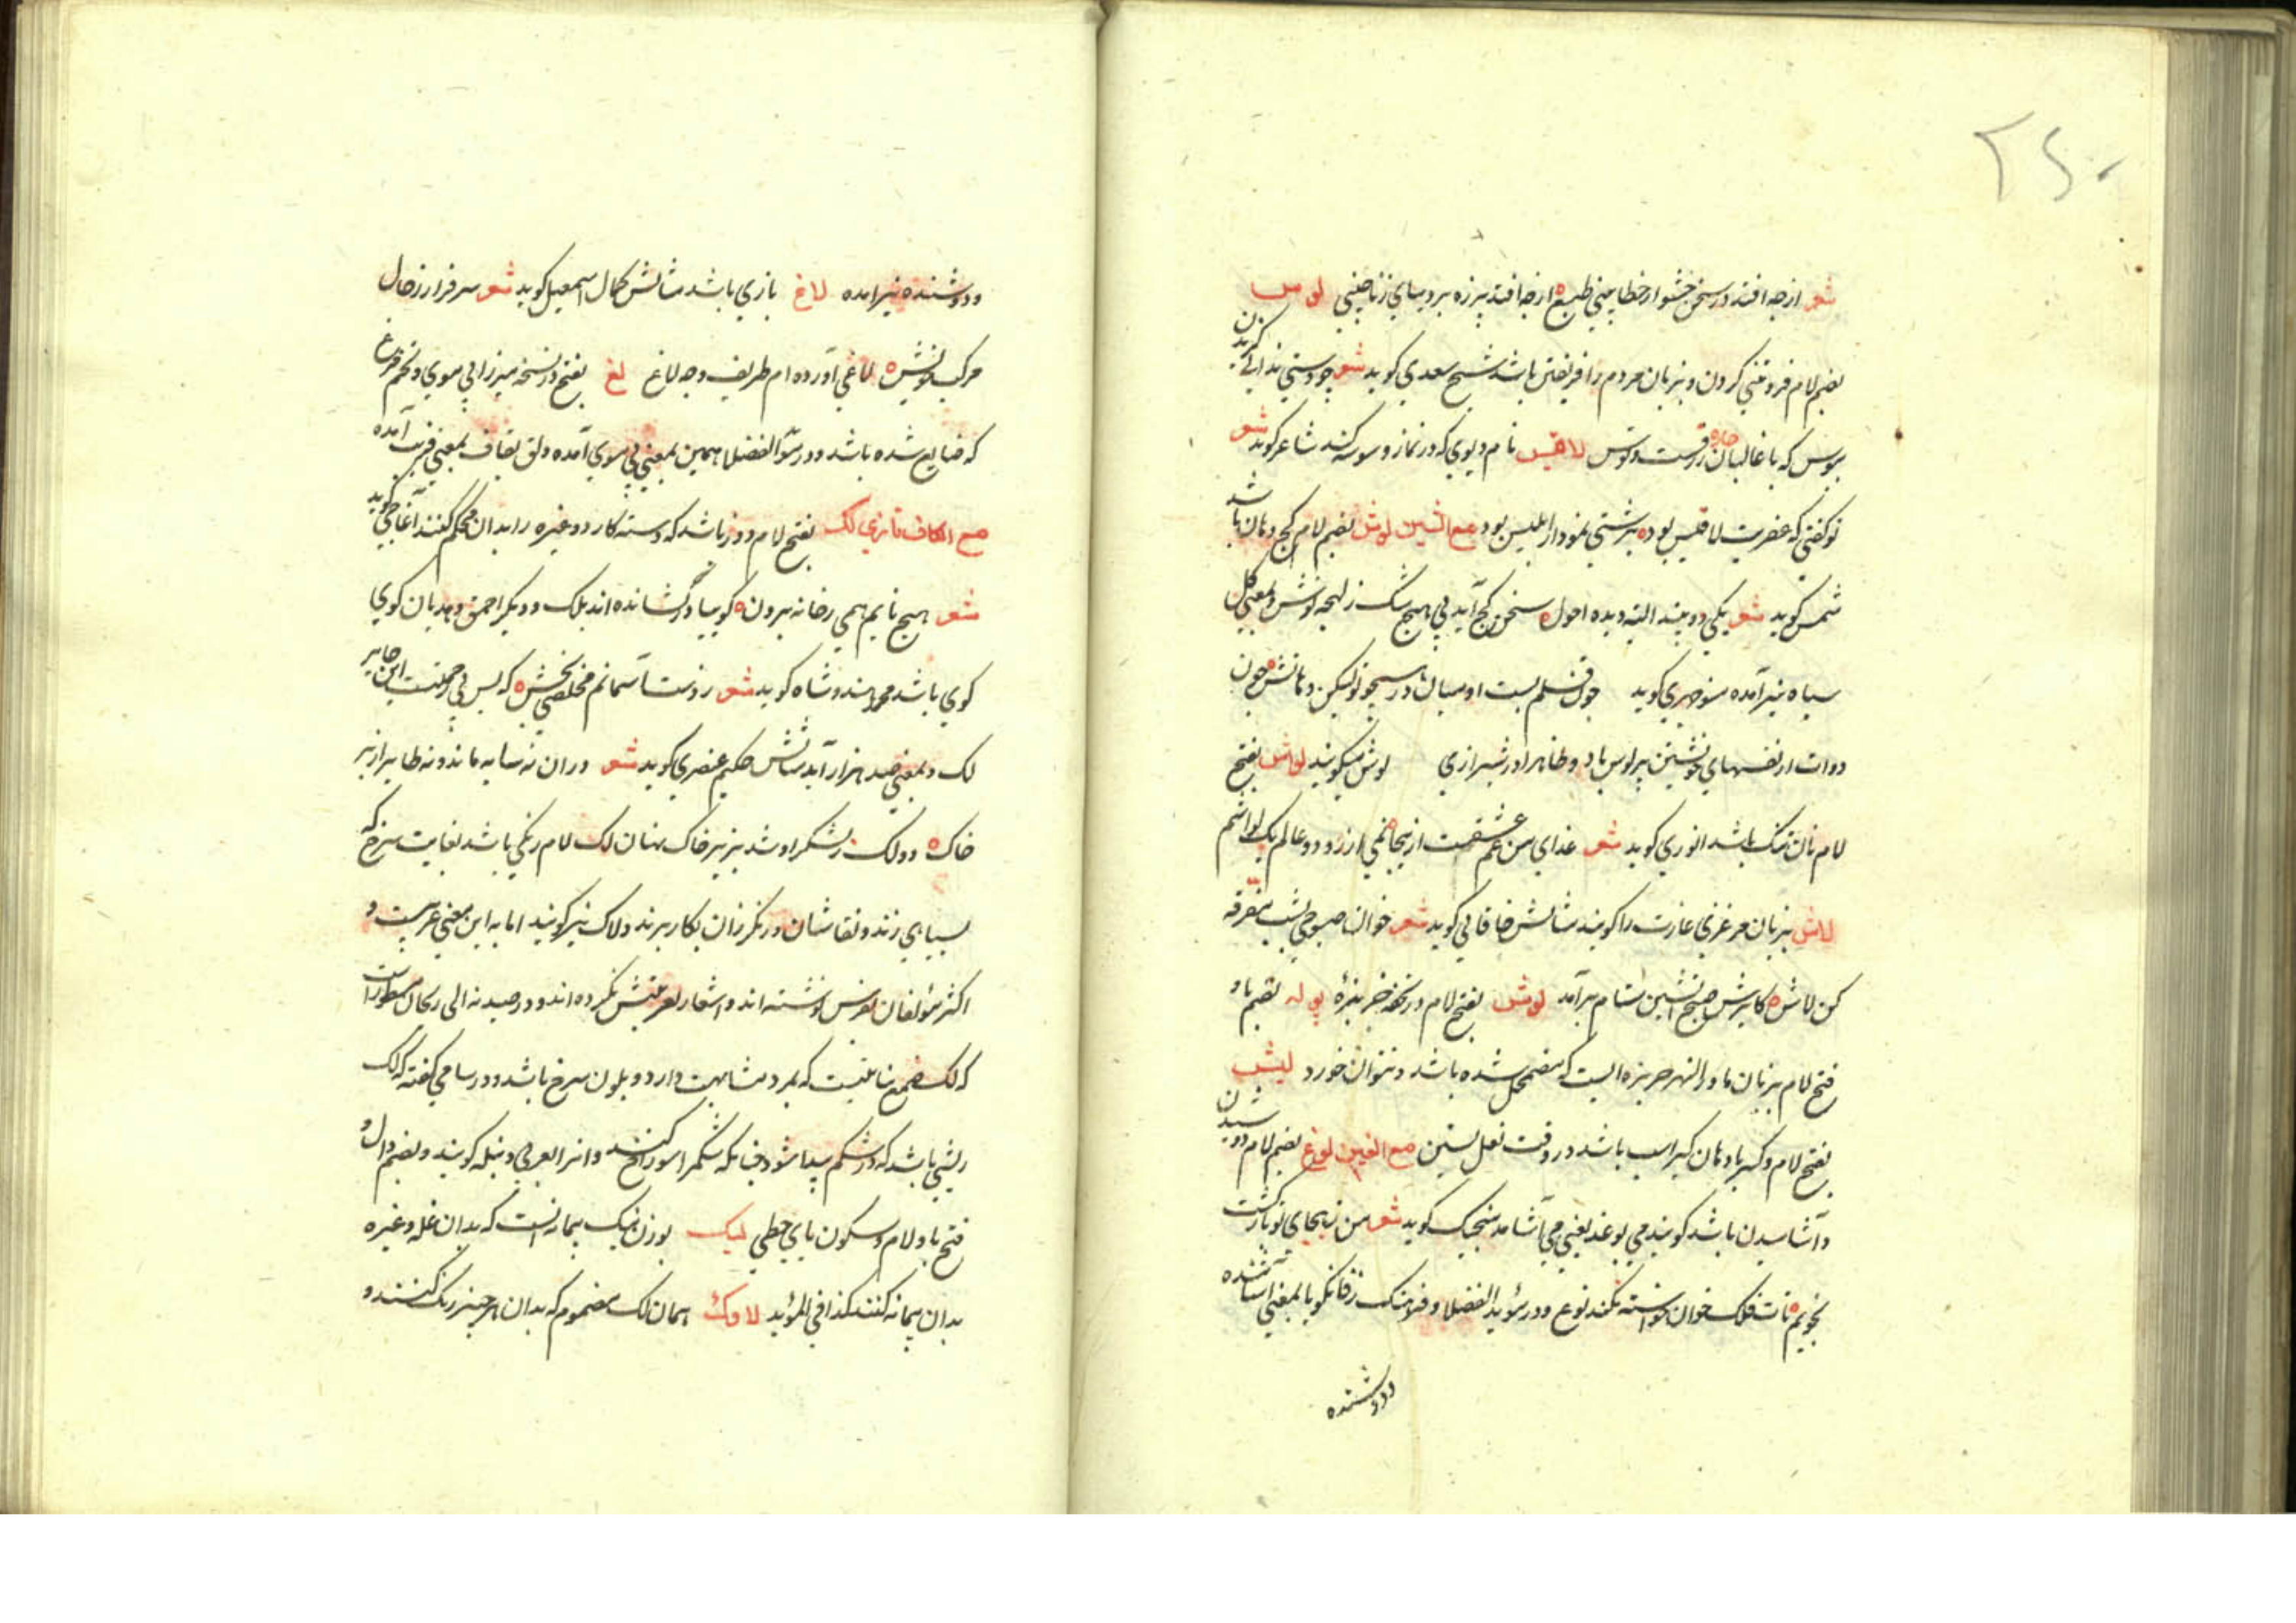 ۲۶۰
شعر ازجه افتد در سخن حشو از خطا بینی طبع ه ازجه افتد پرزه بر دیبای زنا چینی لوس
بضم لام فروتنی کردن و بزبان مردم را فریفتن باشد شیخ سعدی کوید شعر چو دستی نتوان کزیدن
ببوس که با غالبان چاره زرقست و لوس لاقیس نام دیوی که در نماز وسوسه کند شاعر کوید شعر
تو کفتی که عفریت لاقیس بود ه بزشتی نمودار ابلیس بود مع الشین لوش بضم لام کج دهان باشد
شمس کوید شعر یکی دو بیند البته دیده احول ه سخن کج آید بی هیچ شک ز لهجه لوش و بمعنی کل
سیاه نیز آمده منوچهری کوید چون قلم بست او میان در هجو تو لیکن دهانش چون
دوات از نفسهای خویشتن پر لوس باد و ظاهرا در شیرازی لوش میکویند لواش بفتح
لام نان تنک باشد انوری کوید شعر غذای من غم عشقست از ینجا نمی ارزد دو عالم یک لواشم
لاش بزبان مرغزی غارت را کویند مثالش خاقانی کوید شعر خوان صبوحی بشب متفرقه
کن لاش ه کابرش صبح آتشین ستام برآمد لوش بفتح لام در نسخه خربزهٔ بوله بضم با و
فتح لام بزبان ماوراالنهر خربزه ایست که مضمحل شده باشد و نتوان خورد لیشب
بفتح لام و کسر با دهان کیر اسب باشد در وقت نعل بستن مع الغین لوغ بضم لام دوشیدن
و آشامیدن باشد کویند می لوغد یعنی می آشامد منجیک کوید شعر من ز هجای تو باز کشت
نجویم ه تات فلک خوان خواسته نکند لوغ و در مؤید الفضلا و فرهنک زفانکویا بمعنی آشامنده
ودوشنده
ودوشنده نیز امده لاغ بازی باشد مثالش کمال اسمعیل کوید شعر سرفراز رجال
مرکب خویش ه لاغی آورده ام ظریف و چه لاغ لغ بفتح در نسخه میرزا بی موی و تخم مرغ
که ضایع شده باشد و در مؤید الفضلا همین بمعنی بی موی آمده و لق بقاف بمعنی فریب آمده
مع الکاف تازی لک بفتح لام دوز باشد که دسته کارد و غیره را بدان محکم کنند آغاجی کوید
شعر هیچ نایم همی ز خانه برون ه کوییا در نشانده اند بلک و دیکر احمق و هذیان کوی
کوی باشد محمد هندوشاه کوید شعر ز دست آسمانم مخلصی بخش ه که بس بی رحمتست این جابر
لک و بمعنی صد هزار آید مثالش حکیم عنصری کوید شعر در ان نه سایه ماند و نه طایر از بر
خاک ه دو لک ز لشکر او شد بزیر خاک نهان لک لام رنکی باشد بغایت سرخ که
بسیاهی زند و نقاشان و رنکرزان بکار برند و لاک نیز کویند اما به این معنی عربیست و
اکثر مؤلفان بفرس نوشته اند و اشعار بعربیتش نکرده اند و در صیدنه الی ریحان مسطورست
که لک صمغ نباتیست که بمرد مشابهت دارد و بلون سرخ باشد و در سامی کفته که لک
ریشی باشد که در شکم پیدا شود چنانکه شکم را سوراخ کند و انرا بعربی دبیله کویند و بضم دال و
فتح با و لام و سکون یای حطی لیک بوزن نیک پیمانه ایست که بدان غله و غیره
بدان پیمانه کنند کذا فی المؤید لاوک همان لک مضموم که بدان هر چیز رنک کنند و